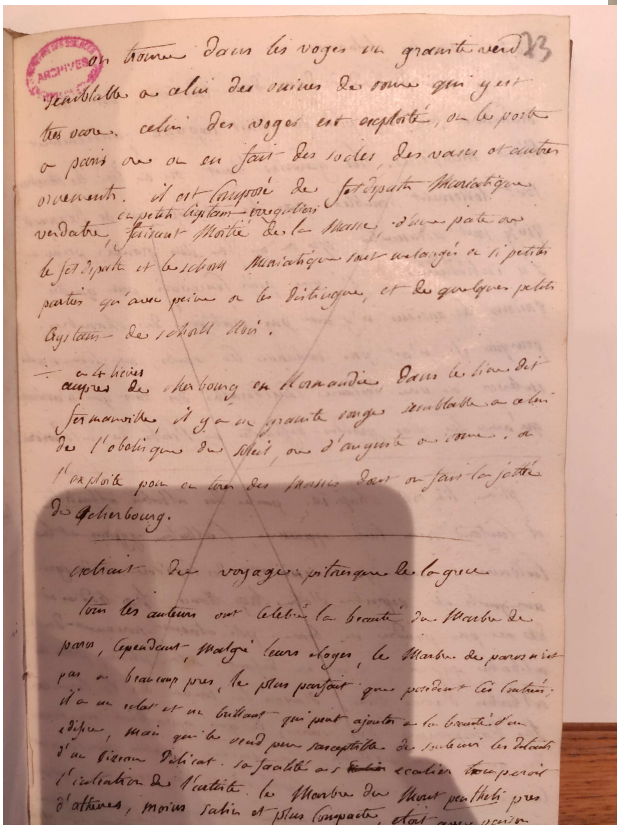 23
ARCHIVES
on trouve dans les voges un granite verd
semblable a celui des ruines de rome qui y est
tres rare. celui des voges est exploité, on le porte
a paris ou on en fait des socles, des vases et autres
ornements. il est Composé de feldspath Muriatique
en petits Cristaux irreguliers
verdatre, faisant Moitié de la Masse, d'une pate ou
le feldspath et le schorll Muriatique sont melangés en si petites
parties qu'avec peine on les distingue, et de quelques petits
Cristaux de schorll Noir.
auprès de cherbourg en Normandie dans le lieu dit
fermanville, il y a un granite rouge semblable a celui
de l'obelisque du soleil, ou d'auguste a rome. on
l'exploite pour en tirer des Masses dont on fait la jettée
de cherbourg.
extrait du voyage pitoresque de la grece
tous les auteurs ont Celebré la beauté du Marbre de
paros, Cependant, Malgré leurs eloges, le Marbre de paros n'est
pas a beaucoup pres, le plus parfait que possedent Ces Contrées;
il a un eclat et un brillant qui peut ajouter a la beauté d'un
edifice, mais qui le rend peu susceptible de soutenir les details
d'un Ciseau Delicat. sa facilité a s'ecailler tromperoit
l'intention de l'artiste. le Marbre du Mont pentheli pres
d'athenes, moins salin et plus Compacte, etoit